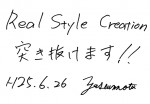 Real Style Creation
突き抜けます!!
H25.6.26 Yasumoto